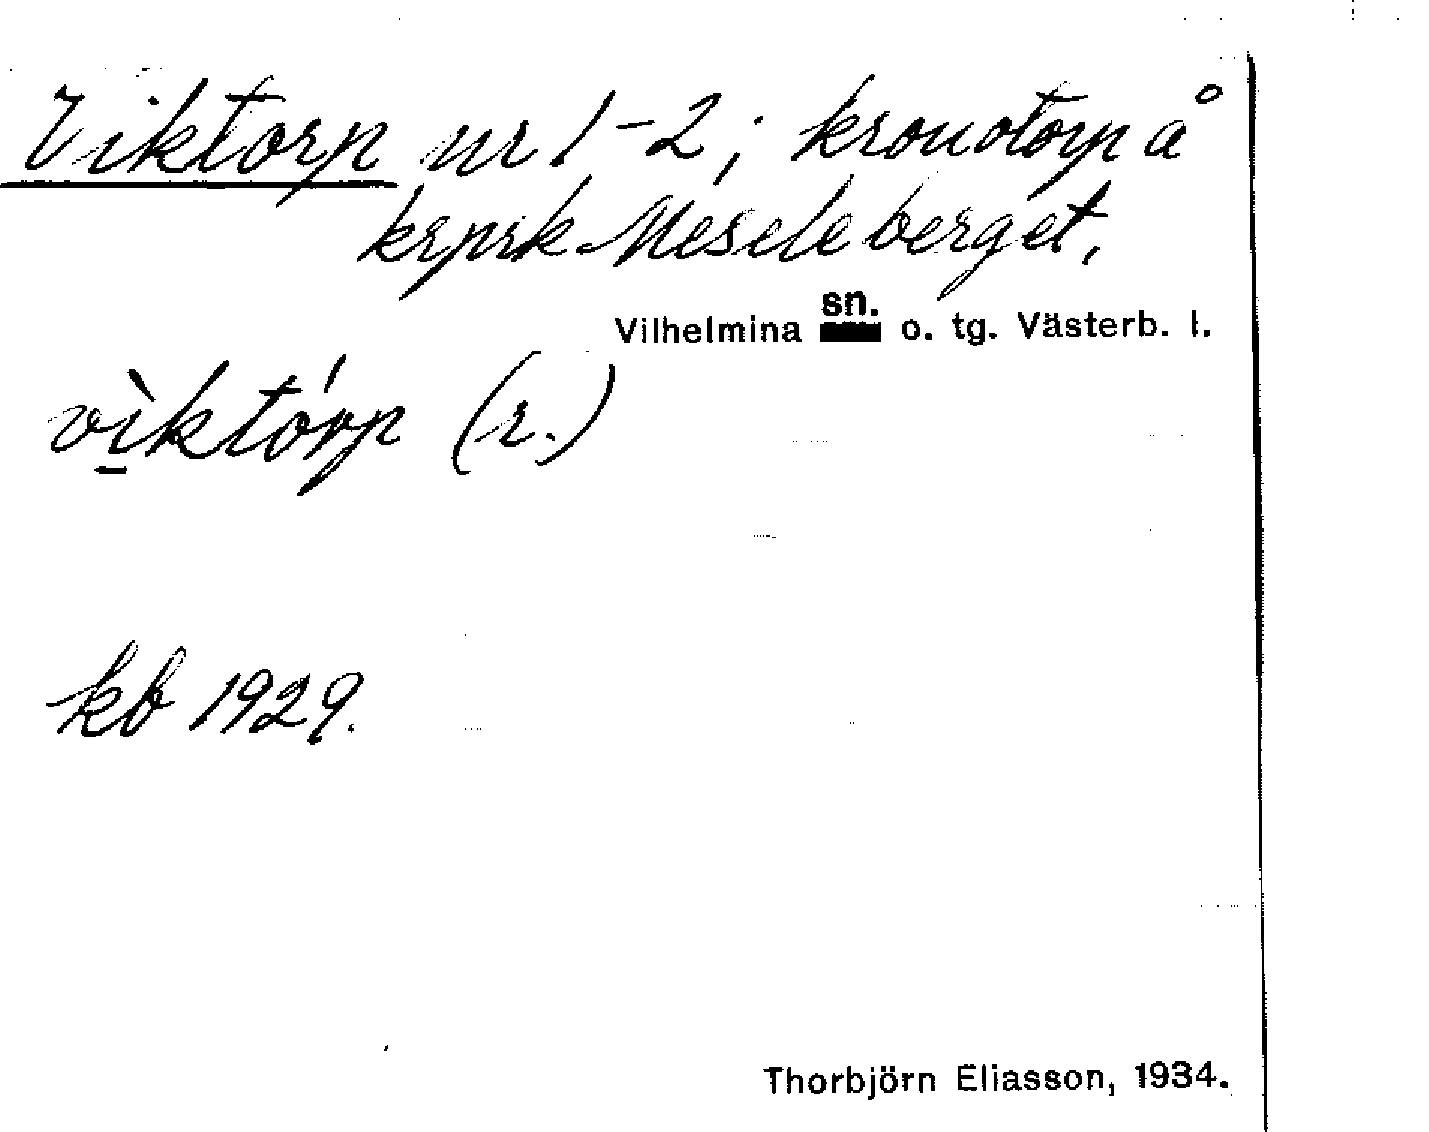 Viktorp nr 1-2; kronotorp å
krprk Meseleberget,
sn.
Vilhelmina o. tg. Västerb. l.
vìktórp (r.)
kb 1929.
Thorbjörn Eliasson, 1934.